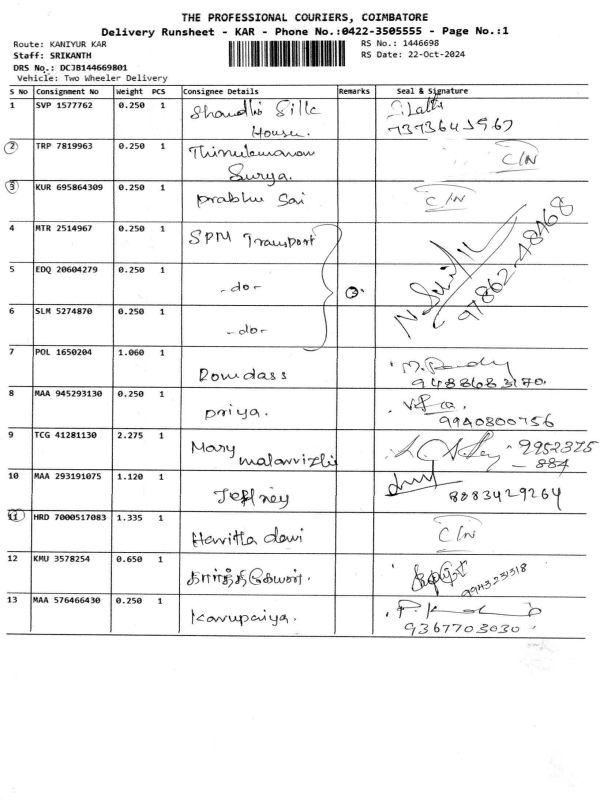 THE PROFESSIONAL COURIERS, COIMBATORE
Delivery Runsheet - KAR - Phone No.:0422-3505555 - Page No.:1
Route: KANIYUR KAR
RS No.: 1446698
Staff: SRIKANTH
RS Date: 22-Oct-2024
DRS No.: DCJB144669801
Vehicle: Two Wheeler Delivery
S No Consignment No Weight PCS Consignee Details Remarks Seal & Signature
1 SVP 1577762 0.250 1 Shandhi Silk
House. 7373641967
2 TRP 7819963 0.250 1 C/N
Surya.
3 KUR 695864309 0.250 1 Prabhu Sai C/N
4 MTR 2514967 0.250 1 SPM Transport
5 EDQ 20604279 0.250 1 -do- 3 97862-48468
6 SLM 5274870 0.250 1 -do-
7 POL 1650204 1.060 1 Ramdass 9488683170.
8 MAA 945293130 0.250 1 Priya. 9940800756
9 TCG 41281130 2.275 1 Mary 9952375
malarvizhi - 884
10 MAA 293191075 1.120 1 Jeffney 8883429264
11 HRD 7000517083 1.335 1 Haritta devi C/N
12 KMU 3578254 0.650 1 கார்த்திகேயன். 9943231318
13 MAA 576466430 0.250 1 Karupaiya. 9367703030.